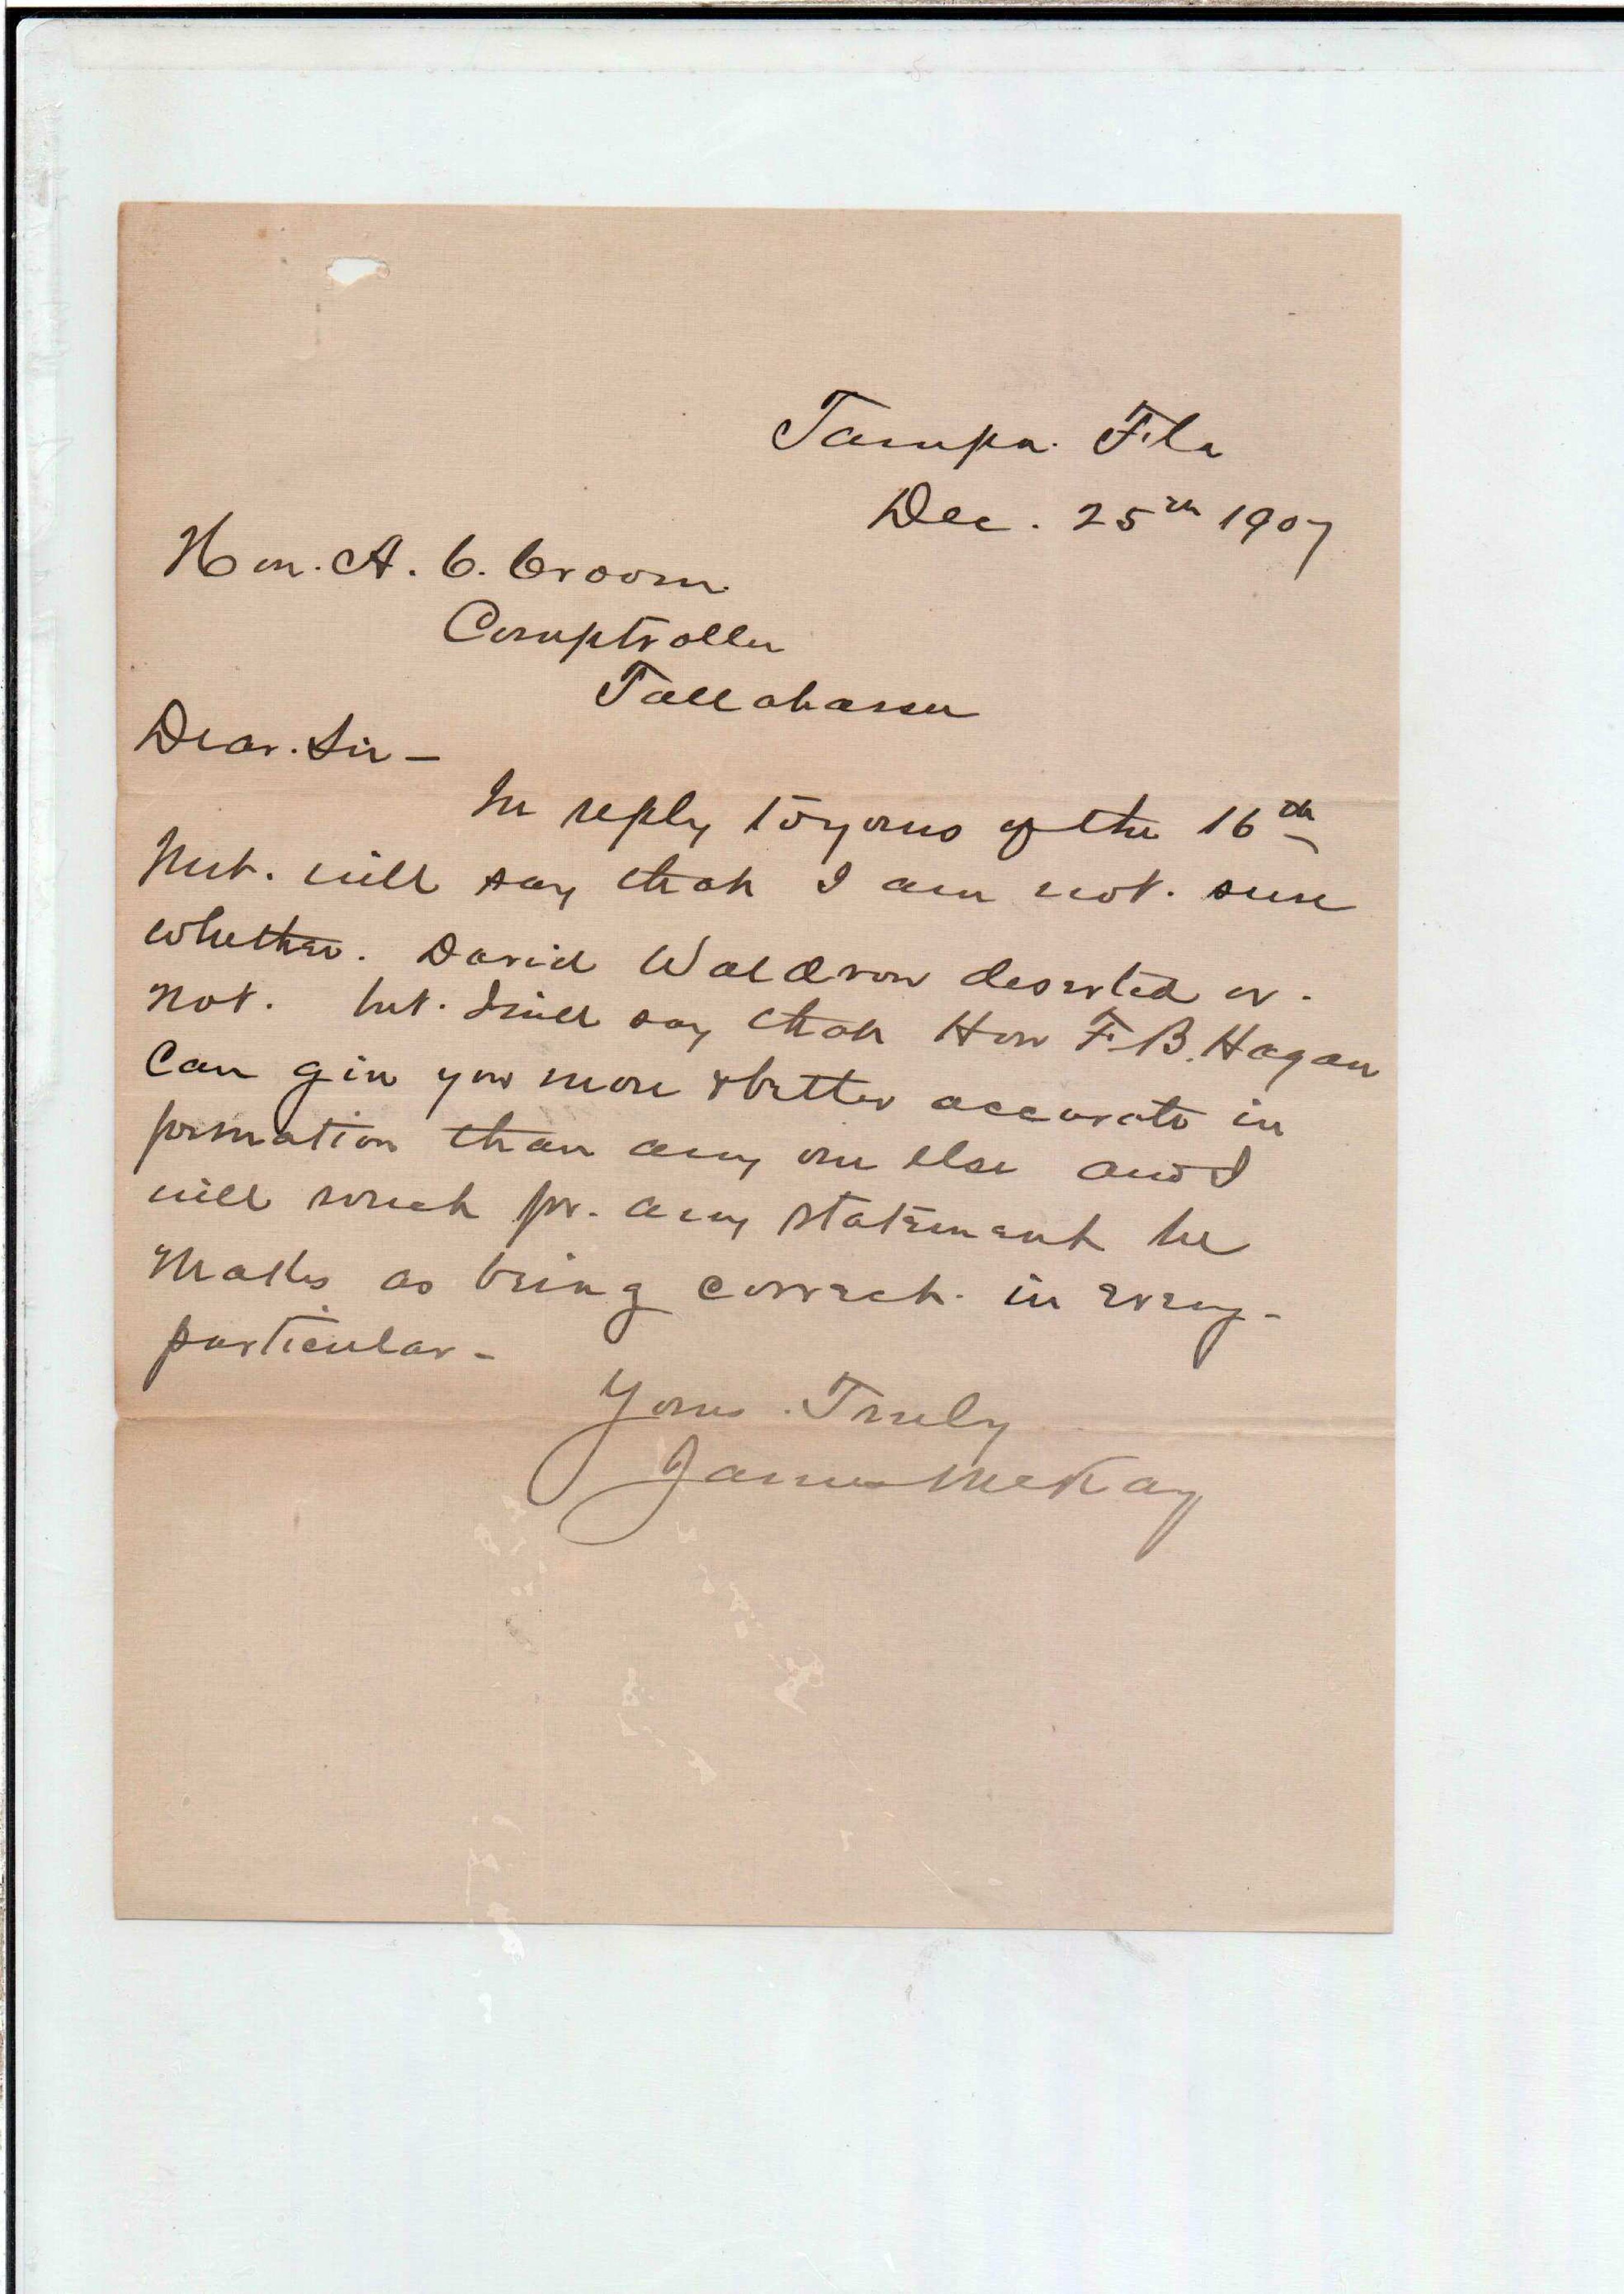 Tampa. Fla
Dec. 25th 1907
Hon. A. C. Croom
Comptroller
Tallahassee
Dear. Sir –
In reply to yours of the 16th
Inst. will say that I am not. sure
whether. David Waldron deserted or.
not. but. I will say that Hon F. B. Hagan
Can give you more & better accurate in
formation than any one else and I
will vouch for. any statement he
Makes as being correct. in every –
particular –
Yours. Truly
James McKay